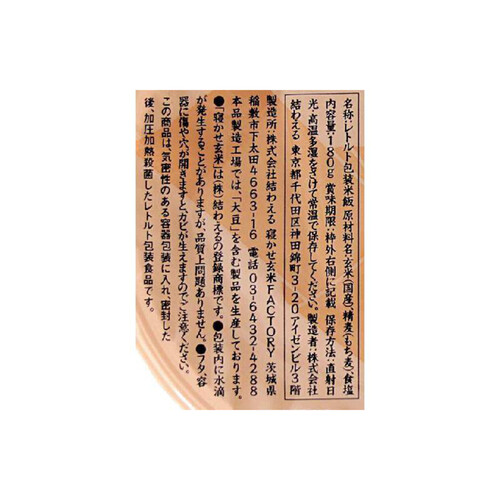 名称:レトルト包装米飯 原材料名:玄米(国産)、精麦(もち麦)、食塩
内容量:180g 賞味期限:枠外右側に記載 保存方法:直射日
光・高温多湿をさけて常温で保存してください。 製造者:株式会社
結わえる 東京都千代田区神田錦町3-20アイゼンビル3階
製造所:株式会社結わえる 寝かせ玄米FACTORY 茨城県
稲敷市下太田4663-16 電話 03-6432-4288
本品製造工場では、「大豆」を含む製品を生産しております。
●「寝かせ玄米」は(株)結わえるの登録商標です。●包装内に水滴
が発生することがありますが、品質上問題ありません。●フタ、容
器に傷や穴が開きますと、カビが生えますのでご注意ください。
この商品は、気密性のある容器包装に入れ、密封した
後、加圧加熱殺菌したレトルト包装食品です。